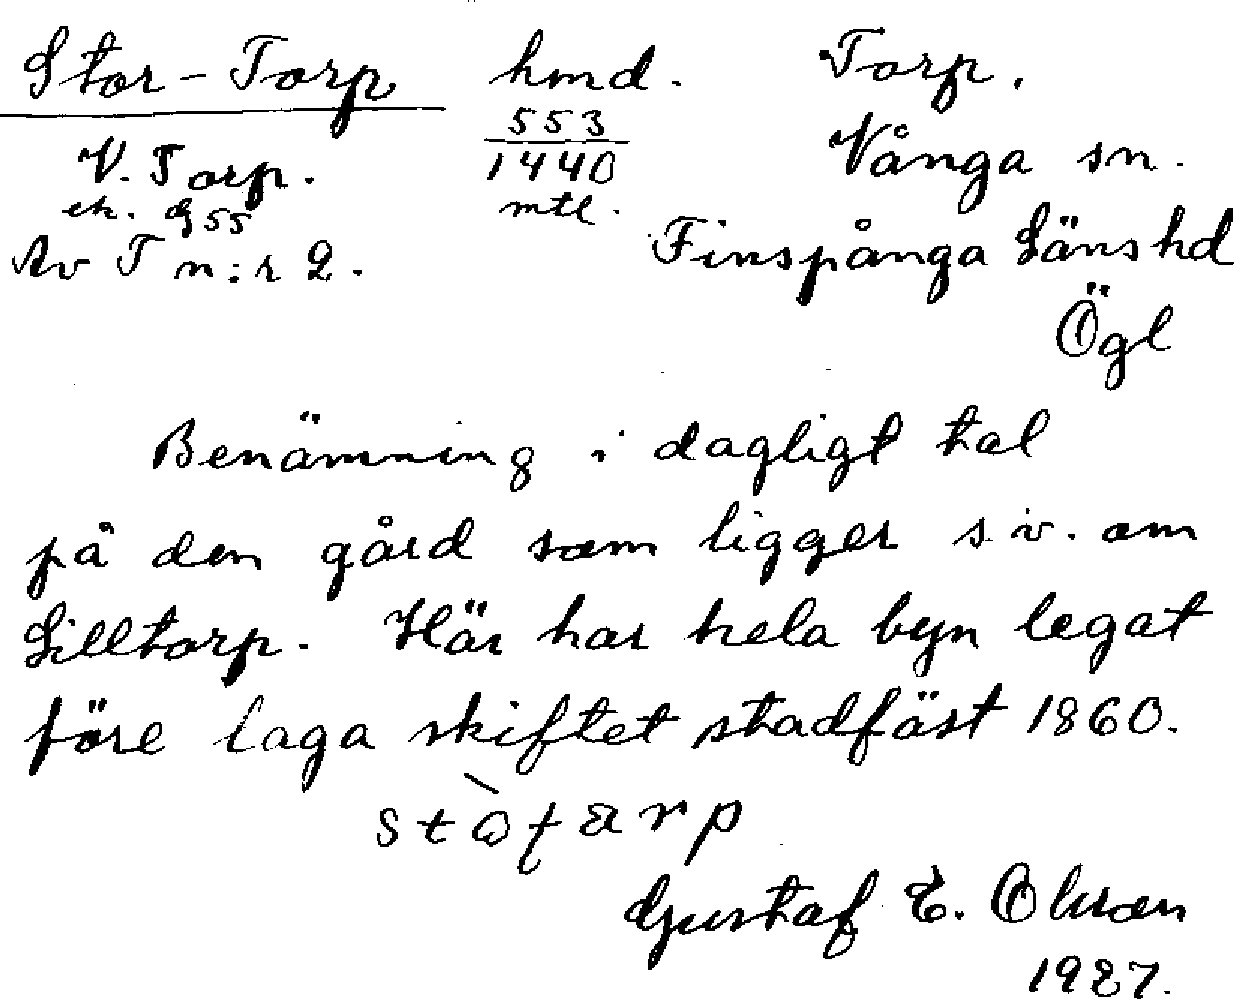 Stor-Torp hmd. Torp.
553
V. Torp. 1440 Vånga sn.
ek. G 55 mtl.
Av T n:r 2. Finspånga Länshd
Ögl
Benämning i dagligt tal
på den gård som ligger s.v. om
Lilltorp. Här har hela byn legat
före laga skiftet stadfäst 1860.
Gustaf E. Olsson
1927.